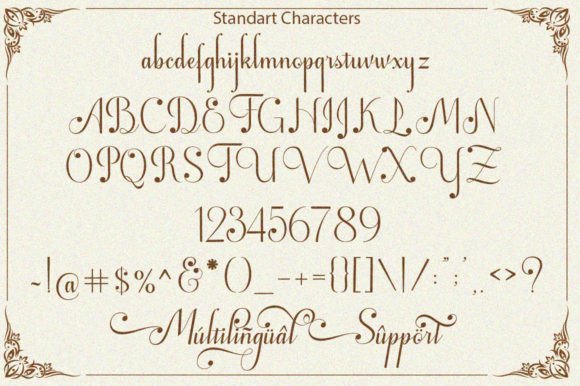 Standart Characters
abcdefghijklmnopqrstuvwxyz
ABCDEFGHIJKLMN
OPQRSTUVWXYZ
123456789
~!@#$%^&*()_-+={}[]\|/:";',.<>?
Múltilingüâl Sûppört